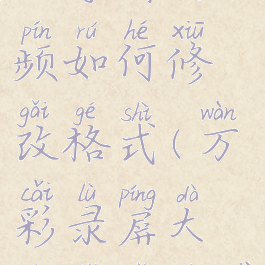 pín rú hé xiū
频如何修
gǎi gé shì wàn
改格式(万
cǎi lù píng dà
彩录屏大